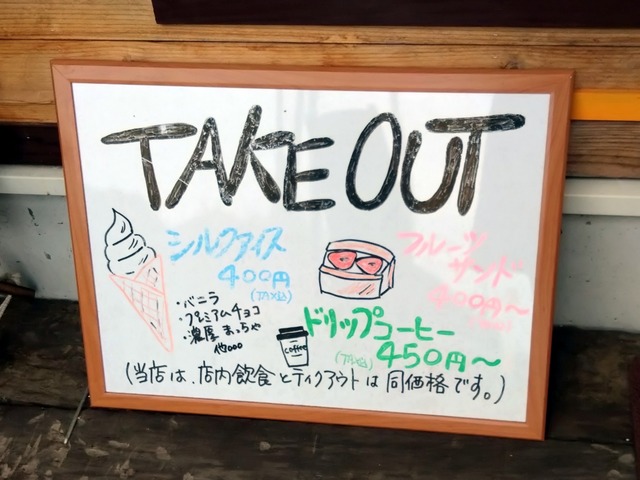 TAKE OUT
シルクアイス
400円
(税込)
・バニラ
・プレミアムチョコ
・濃厚まっちゃ
他ooo
フルーツ
サンド
400円～
(税込)
coffee
ドリップコーヒー
(税込) 450円～
(当店は、店内飲食とテイクアウトは同価格です。)